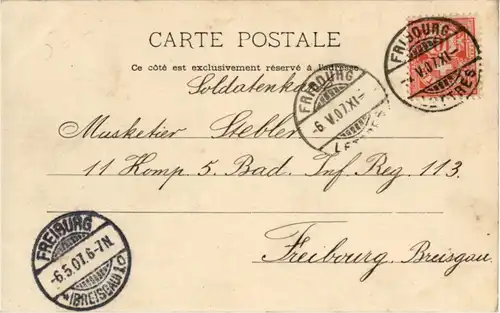 CARTE POSTALE
Ce côté est exclusivement réservé à l'adresse
Soldatenkarte
Musketier Stebler
11 Komp. 5. Bad. Inf. Reg. 113.
Freibourg, Breisgau.
FRIBOURG
V.07.XI–
LETTRES
FRIBOURG
–6.V.07.XI–
LETTRES
FREIBURG
–6.5.07.6-7N.
(BREISGAU) 10